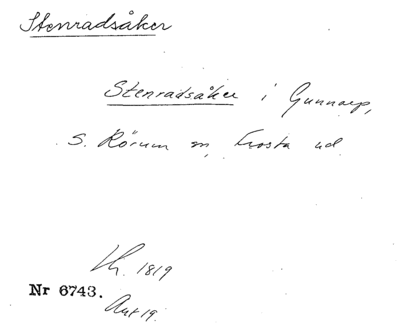 Stenradsåker
Stenradsåker i Gunnarp,
S. Rörum sn, Frosta hd
Lh. 1819
Nr 6743.
Akt 19.